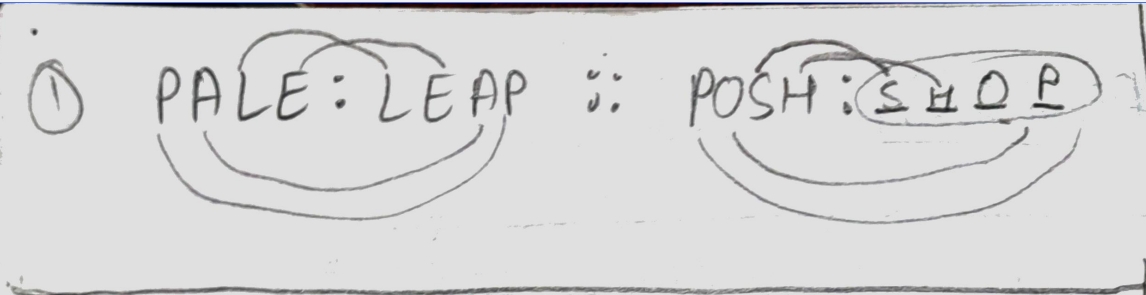 ① PALE : LEAP :: POSH : SHOP